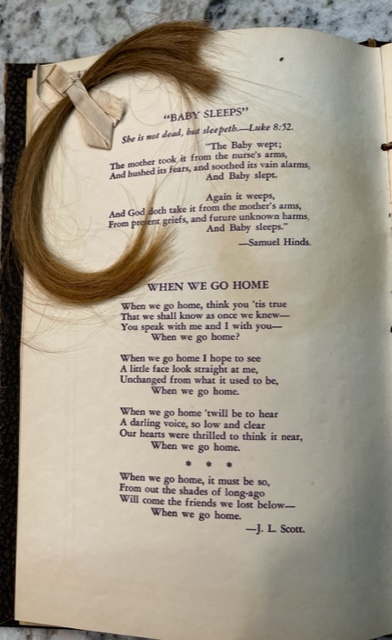 "BABY SLEEPS"
She is not dead, but sleepeth.—Luke 8:52.
"The Baby wept;
The mother took it from the nurse's arms,
And hushed its fears, and soothed its vain alarms,
And Baby slept.
Again it weeps,
And God doth take it from the mother's arms,
From present griefs, and future unknown harms,
And Baby sleeps."
—Samuel Hinds.
WHEN WE GO HOME
When we go home, think you 'tis true
That we shall know as once we knew—
You speak with me and I with you—
When we go home?
When we go home I hope to see
A little face look straight at me,
Unchanged from what it used to be,
When we go home.
When we go home 'twill be to hear
A darling voice, so low and clear
Our hearts were thrilled to think it near,
When we go home.
* * *
When we go home, it must be so,
From out the shades of long-ago
Will come the friends we lost below—
When we go home.
—J. L. Scott.